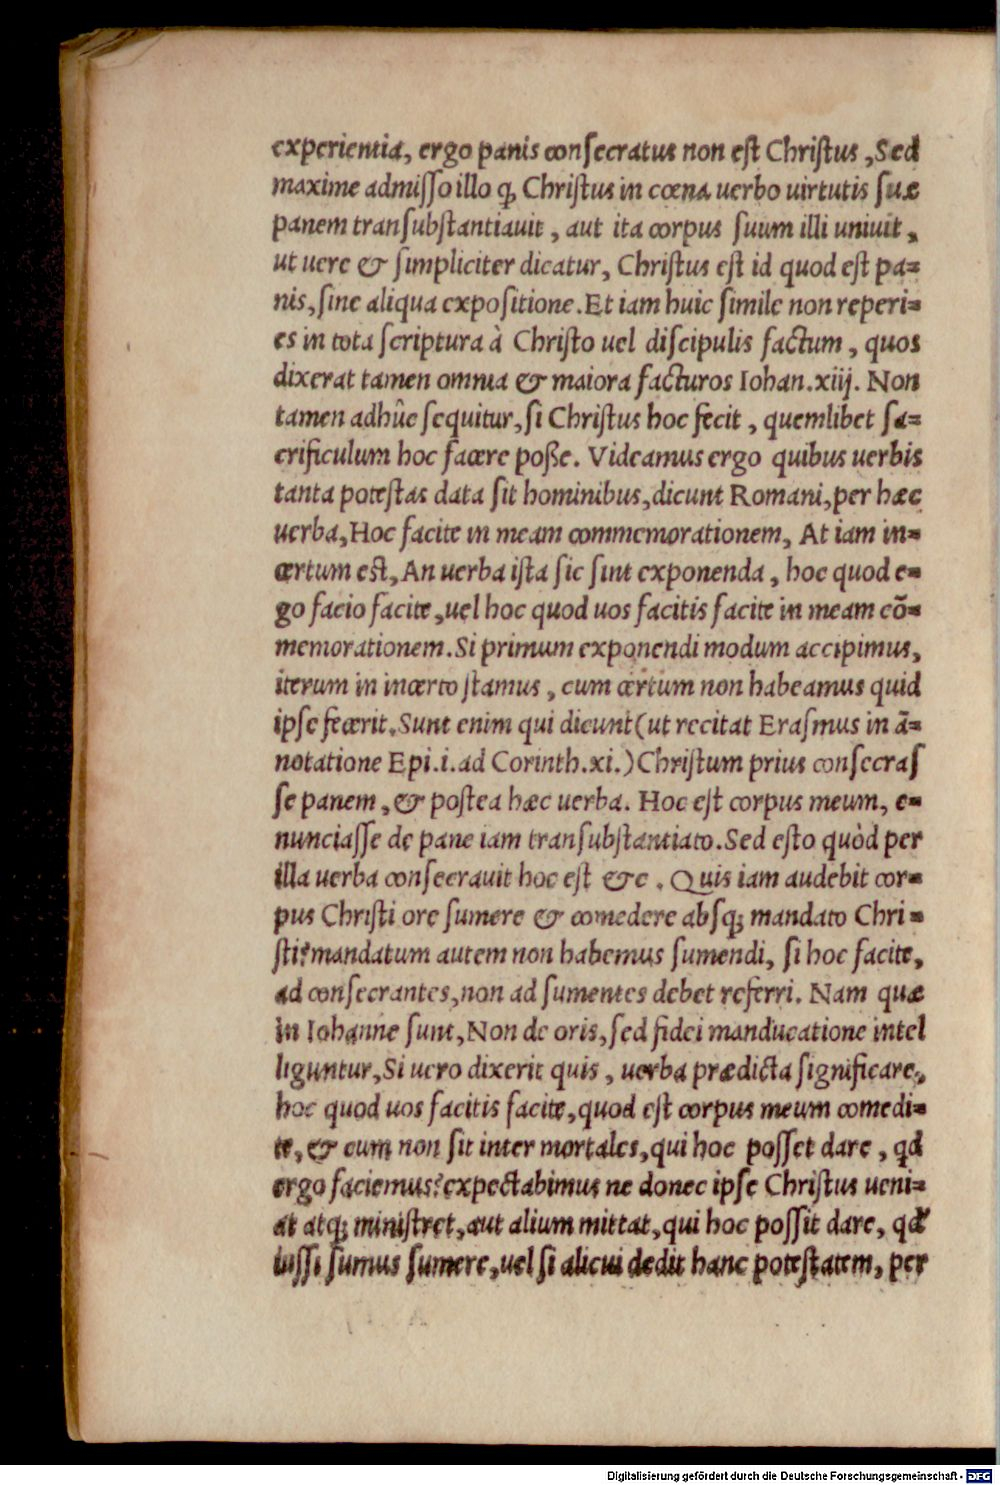 experientia, ergo panis consecratus non est Christus, Sed
maxime admisso illo ꝙ Christus in cœna uerbo uirtutis suæ
panem transubstantiauit, aut ita corpus suum illi uniuit,
ut uere & simpliciter dicatur, Christus est id quod est pa=
nis, sine aliqua expositione. Et iam huic simile non reperi=
es in tota scriptura à Christo uel discipulis factum, quos
dixerat tamen omnia & maiora facturos Iohan. xiij. Non
tamen adhûc sequitur, si Christus hoc fecit, quemlibet sa=
crificulum hoc facere poße. Videamus ergo quibus uerbis
tanta potestas data sit hominibus, dicunt Romani, per hæc
uerba, Hoc facite in meam commemorationem, At iam in=
certum est, An uerba ista sic sint exponenda, hoc quod e=
go facio facite, uel hoc quod uos facitis facite in meam cō=
memorationem. Si primum exponendi modum accipimus,
iterum in incerto stamus, cum certum non habeamus quid
ipse fecerit. Sunt enim qui dicunt (ut recitat Erasmus in ā=
notatione Epi. i. ad Corinth. xi.) Christum prius consecras
se panem, & postea hæc uerba. Hoc est corpus meum, e=
nunciasse de pane iam transubstantiato. Sed esto quòd per
illa uerba consecrauit hoc est &c. Quis iam audebit cor=
pus Christi ore sumere & comedere absq; mandato Chri=
sti? mandatum autem non habemus sumendi, si hoc facite,
ad consecrantes, non ad sumentes debet referri. Nam quæ
in Iohanne sunt, Non de oris, sed fidei manducatione intel
liguntur, Si uero dixerit quis, uerba prædicta significare,
hoc quod uos facitis facite, quod est corpus meum comedi=
te, & cum non sit inter mortales, qui hoc posset dare, qd
ergo faciemus? expectabimus ne donec ipse Christus ueni=
at atq; ministret, aut alium mittat, qui hoc possit dare, qd
iussi sumus sumere, uel si alicui dedit hanc potestatem, per
Digitalisierung gefördert durch die Deutsche Forschungsgemeinschaft - DFG